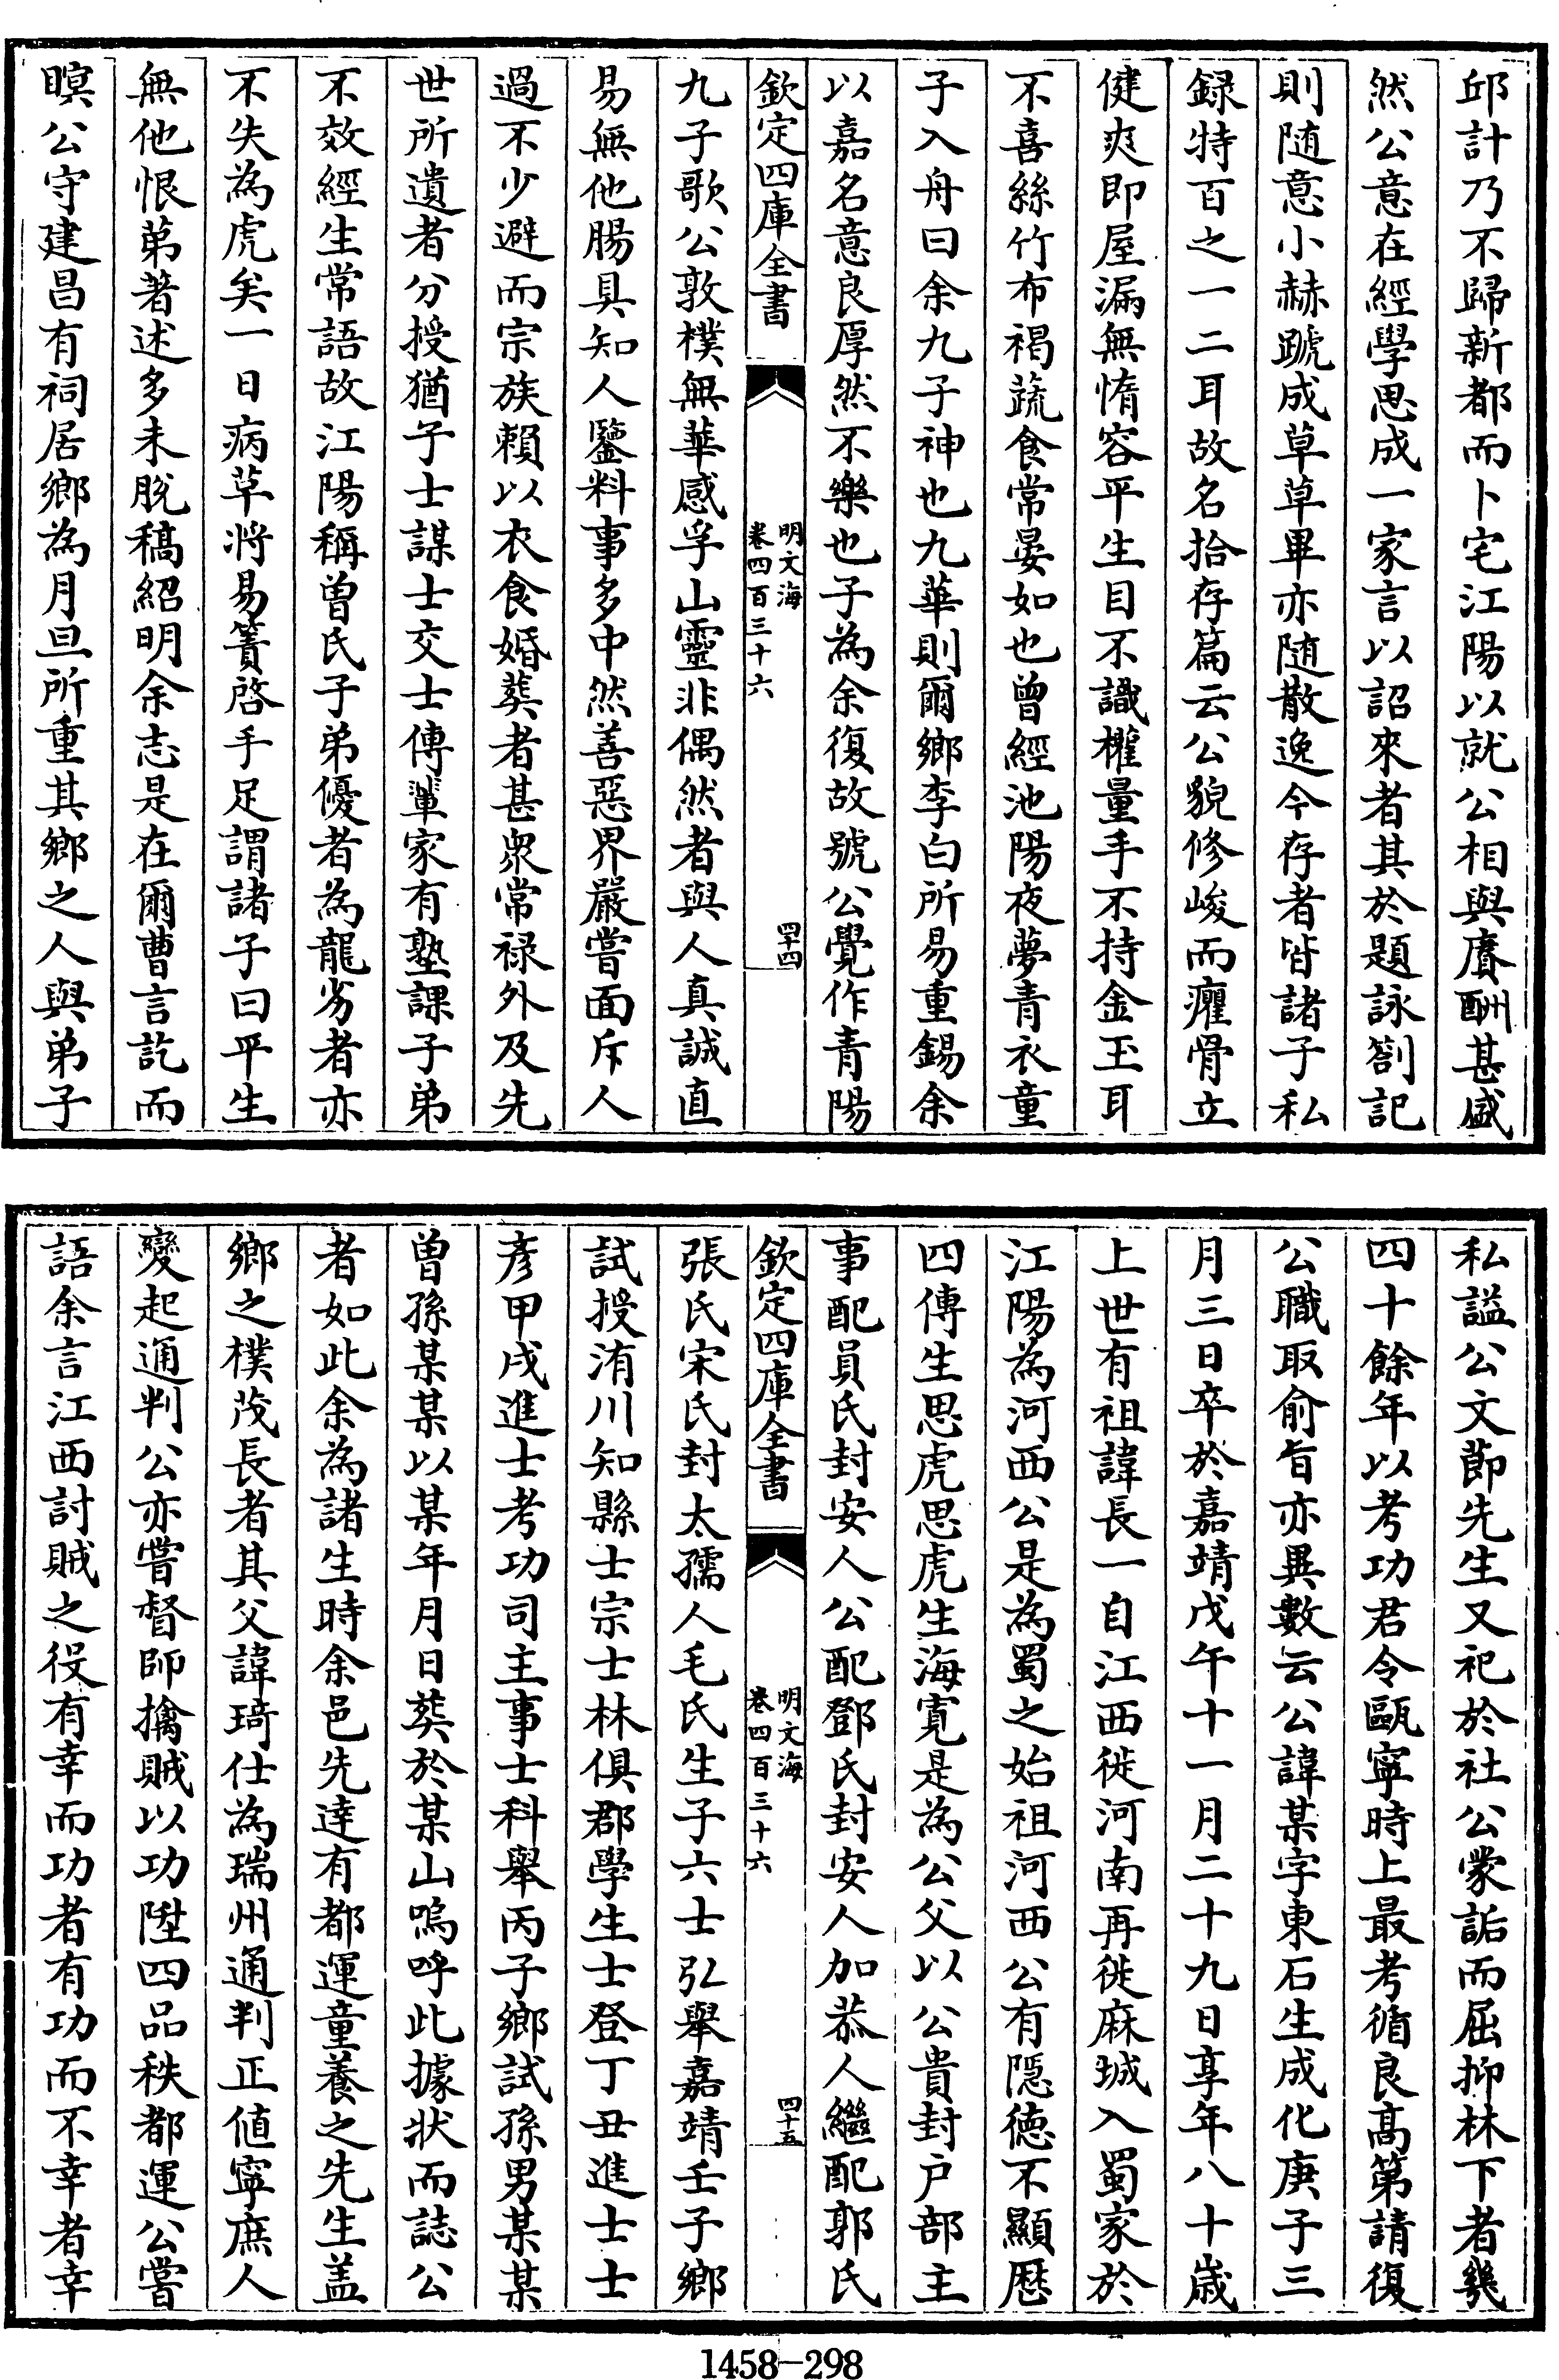 邱計乃不歸新都而卜宅江陽以就公相與賡酬甚盛
然公意在經學思成一家言以詔來者其於題詠劄記
則随意小赫蹏成草草畢亦随散逸今存者皆諸子私
録特百之一二耳故名拾存篇云公貌修峻而癯骨立
健爽即屋漏無惰容平生目不識權量手不持金玉耳
不喜絲竹布褐蔬食常晏如也曾經池陽夜夢青衣童
子入舟曰余九子神也九華則爾鄉李白所易重錫余
以嘉名意良厚然不樂也子為余復故號公覺作青陽
欽定四庫全書
明文海
卷四百三十六
四十四
九子歌公敦樸無華感孚山靈非偶然者與人真誠直
易無他腸具知人鑒料事多中然善惡界嚴嘗面斥人
過不少避而宗族賴以衣食婚葬者甚衆常禄外及先
世所遺者分授猶子士謀士交士傳輩家有塾課子弟
不效經生常語故江陽稱曾氏子弟優者為龍劣者亦
不失為虎矣一日病草将易簀啓手足謂諸子曰平生
無他恨苐著述多未脫稿紹明余志是在爾曹言訖而
瞑公守建昌有祠居鄉為月旦所重其鄉之人與弟子
私謚公文節先生又祀於社公蒙詬而屈抑林下者幾
四十餘年以考功君令甌寧時上最考循良高第請復
公職取俞旨亦異數云公諱某字東石生成化庚子三
月三日卒於嘉靖戊午十一月二十九日享年八十歲
上世有祖諱長一自江西徙河南再徙麻城入蜀家於
江陽為河西公是為蜀之始祖河西公有隠德不顯歷
四傳生思虎思虎生海寛是為公父以公貴封户部主
事配員氏封安人公配鄧氏封安人加恭人繼配郭氏
欽定四庫全書
明文海
卷四百三十六
四十五
張氏宋氏封太孺人毛氏生子六士弘舉嘉靖壬子鄉
試授洧川知縣士宗士林俱郡學生士登丁丑進士士
彥甲戌進士考功司主事士科舉丙子鄉試孫男某某
曾孫某某以某年月日葬於某山嗚呼此據狀而誌公
者如此余為諸生時余邑先達有都運童養之先生盖
鄉之樸茂長者其父諱琦仕為瑞州通判正值寧庶人
變起通判公亦嘗督師擒賊以功陞四品秩都運公嘗
語余言江西討賊之役有幸而功者有功而不幸者幸
1458-298